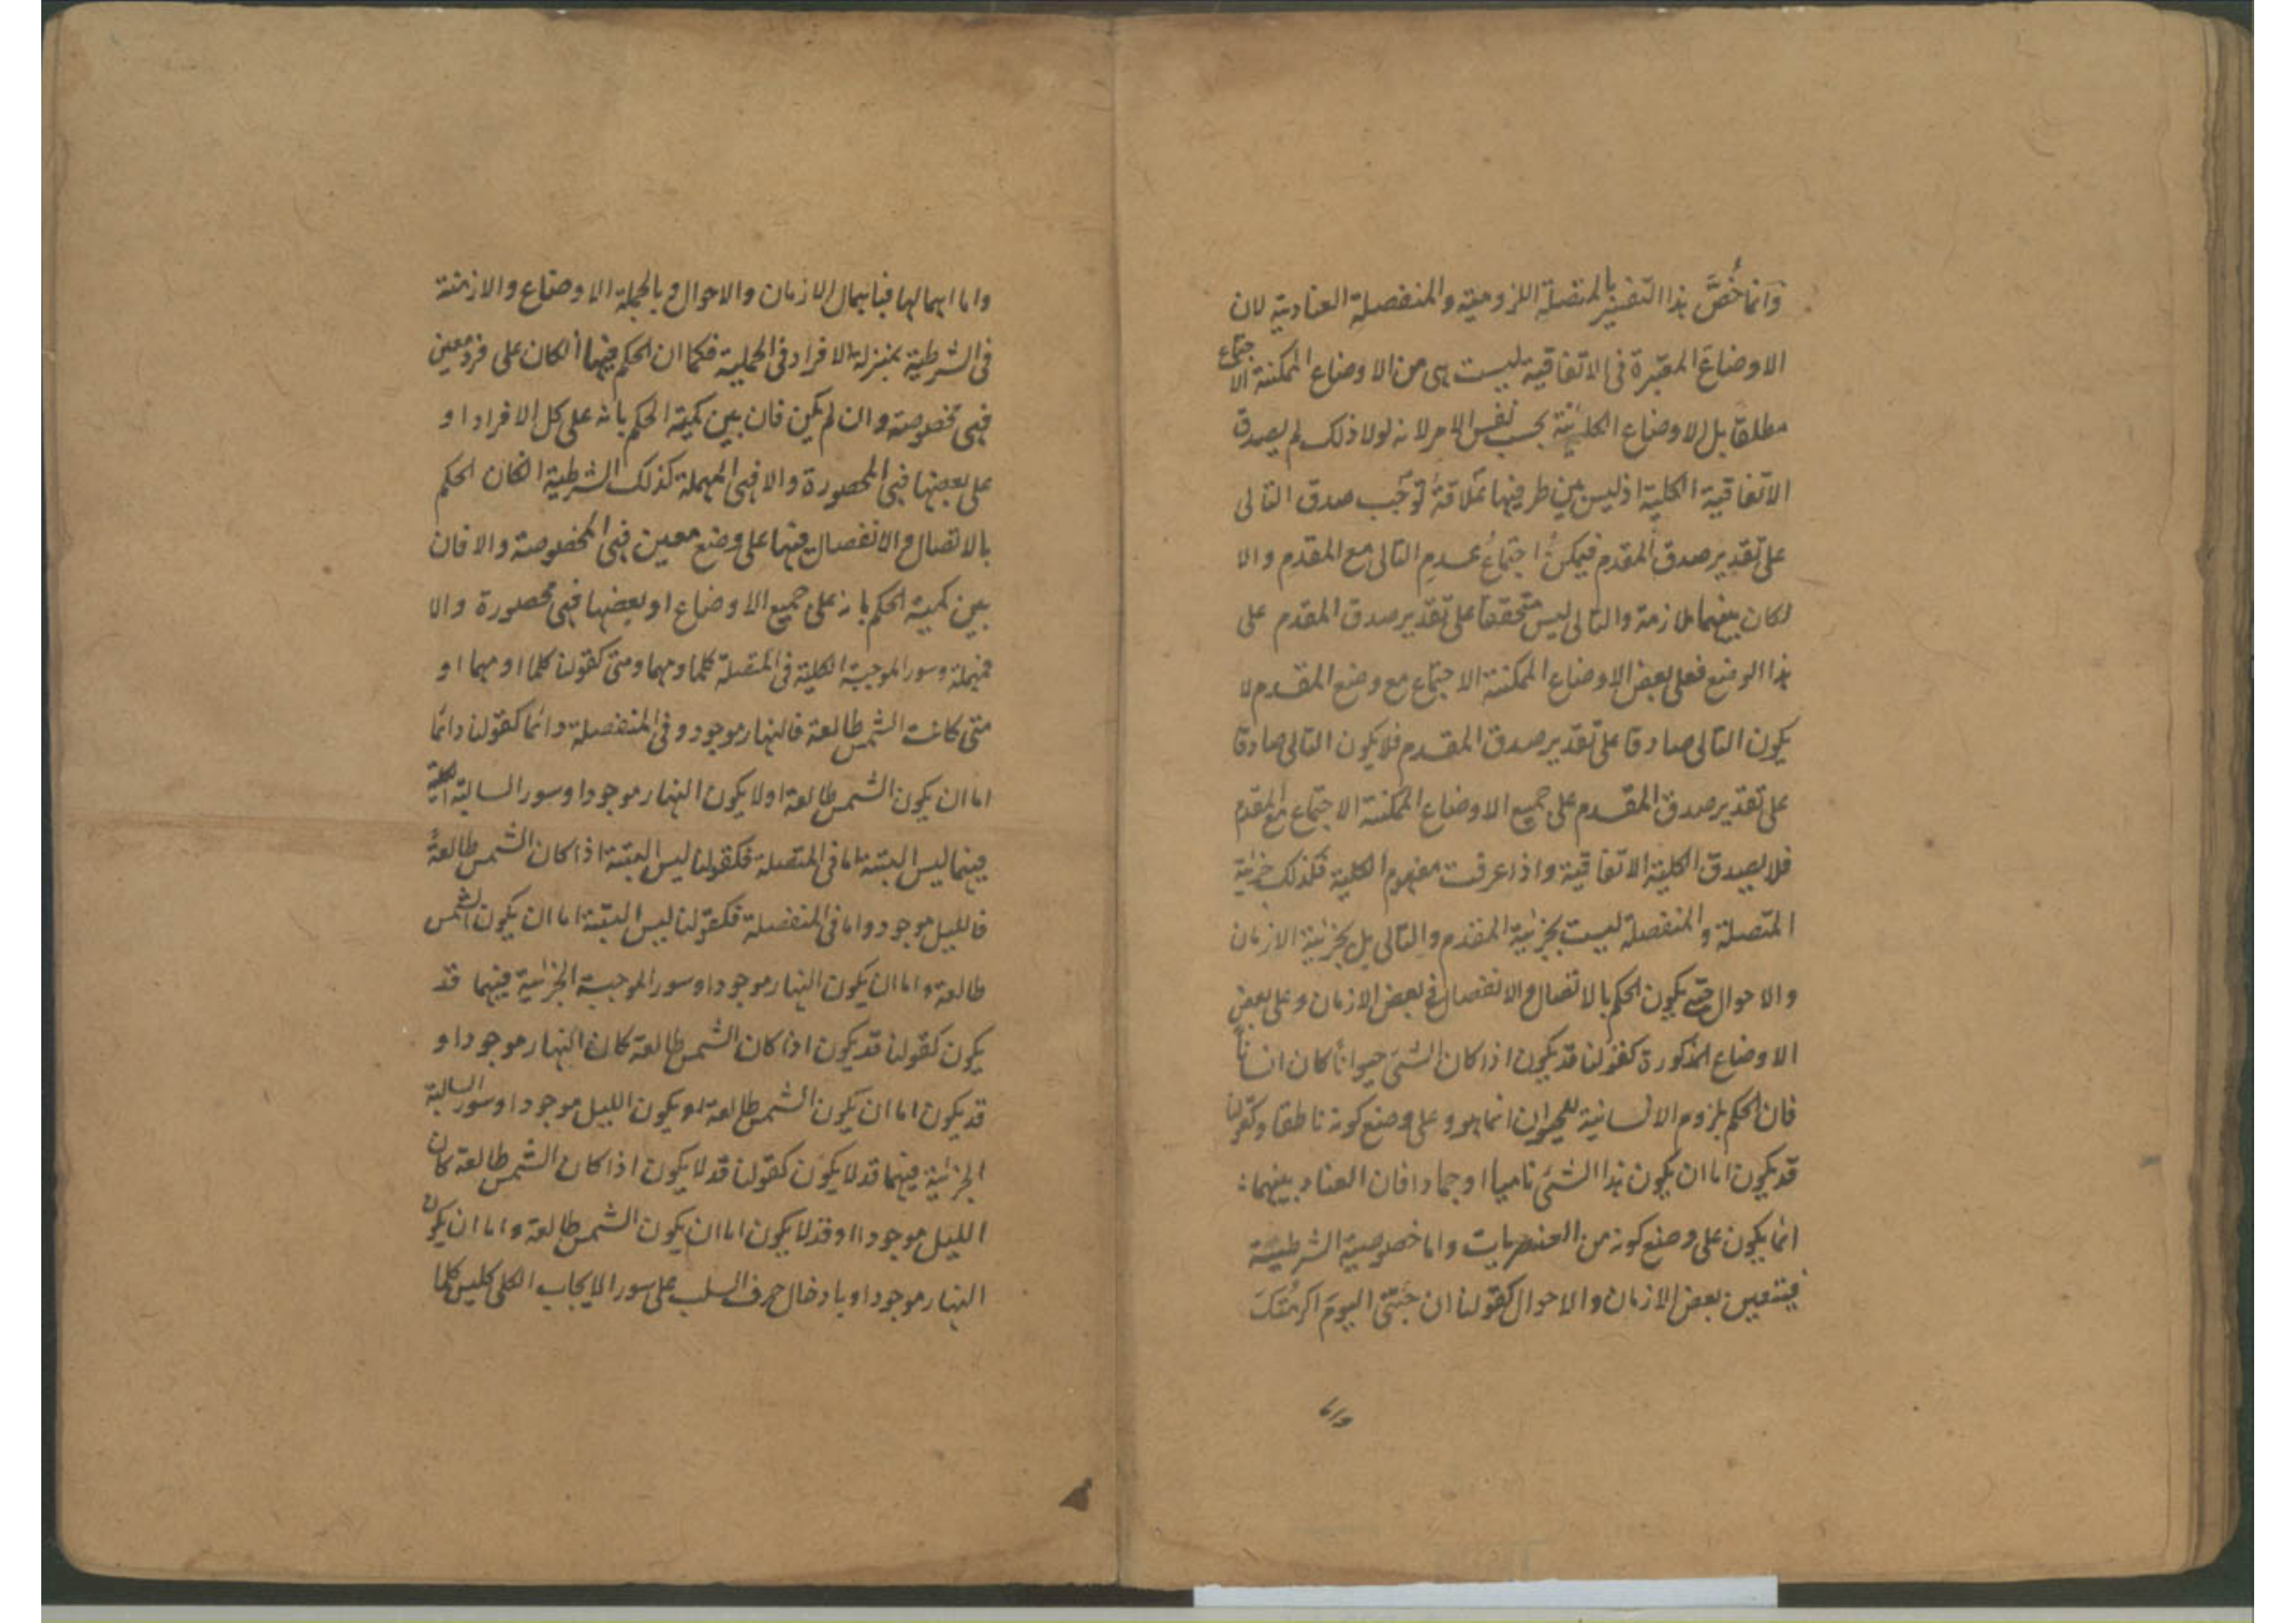 وَانما خُصَّ هذا التفسير بالمتصلة اللزومية والمنفصلة العنادية لان
الاوضاعَ المعتبرة فى الاتفاقية ليست هى من الاوضاع الممكنة الاجتماع
مطلقا بل الاوضاع الكائنة بحسب نفس الامر لانه لولا ذلك لم يصدق
الاتفاقية الكلية اذ ليس بين طرفيها علاقةٌ توجب صدق التالى
على تقدير صدق المقدم فيمكنُ اجتماعُ عدمِ التالى مع المقدم والا
لكان بينهما ملازمة والتالى ليس متحققا على تقدير صدق المقدم على
هذا الوضع فعلى بعض الاوضاع الممكنة الاجتماع مع وضع المقدم لا
يكون التالى صادقا على تقدير صدق المقدم فلا يكون التالى صادقا
على تقدير صدق المقدم على جميع الاوضاع الممكنة الاجتماع مع المقدم
فلا يصدق الكلية الاتفاقية واذا عرفت مفهوم الكلية فكذلك جزئية
المتصلة والمنفصلة ليست بجزئية المقدم والتالى بل بجزئية الازمان
والاحوال حتى يكون الحكم بالاتصال والانفصال فى بعض الازمان وعلى بعض
الاوضاع المذكورة كقولنا قد يكون اذا كان الشئ حيوانا كان انسانا
فان الحكم بلزوم الانسانية للحيوان انما هو على وضع كونه ناطقا وكقولنا
قد يكون اما ان يكون هذا الشئ ناميا او جمادا فان العناد بينهما
انما يكون على وضع كونه من العنصريات واما خصوصية الشرطية
فبتعين بعض الازمان والاحوال كقولنا ان جئتنى اليومَ اكرمتُكَ
واما اهمالها فباهمال الازمان والاحوال وبالجملة الاوضاع والازمنة
فى الشرطية بمنزلة الافراد فى الحملية فكما ان الحكم فيها انكان على فرد معين
فهى مخصوصة وان لم يكن فان بين كمية الحكم بانه على كل الافراد او
على بعضها فهى المحصورة والا فهى المهملة كذلك الشرطية انكان الحكم
بالاتصال والانفصال فيها على وضع معين فهى المخصوصة والا فان
بين كمية الحكم بانه على جميع الاوضاع او بعضها فهى محصورة والا
فمهملة وسور الموجبة الكلية فى المتصلة كلما ومهما ومتى كقولنا كلما او مهما او
متى كانت الشمس طالعة فالنهار موجود وفى المنفصلة دائما كقولنا دائما
اما ان يكون الشمس طالعة اولا يكون النهار موجودا وسور السالبة الكلية
فيهما ليس البتة اما فى المتصلة فكقولنا ليس البتة اذا كان الشمس طالعةً
فالليل موجود واما فى المنفصلة فكقولنا ليس البتة اما ان يكون الشمس
طالعة واما ان يكون النهار موجودا وسور الموجبة الجزئية فيهما قد
يكون كقولنا قد يكون اذا كان الشمس طالعة كان النهار موجودا و
قد يكون اما ان يكون الشمس طالعة او يكون الليل موجودا وسور السالبة
الجزئية فيهما قد لا يكون كقولنا قد لا يكون اذا كان الشمس طالعة كان
الليل موجودا او قد لا يكون اما ان يكون الشمس طالعة واما ان يكون
النهار موجودا وبادخال حرف السلب على سور الايجاب الكلى كليس كلما